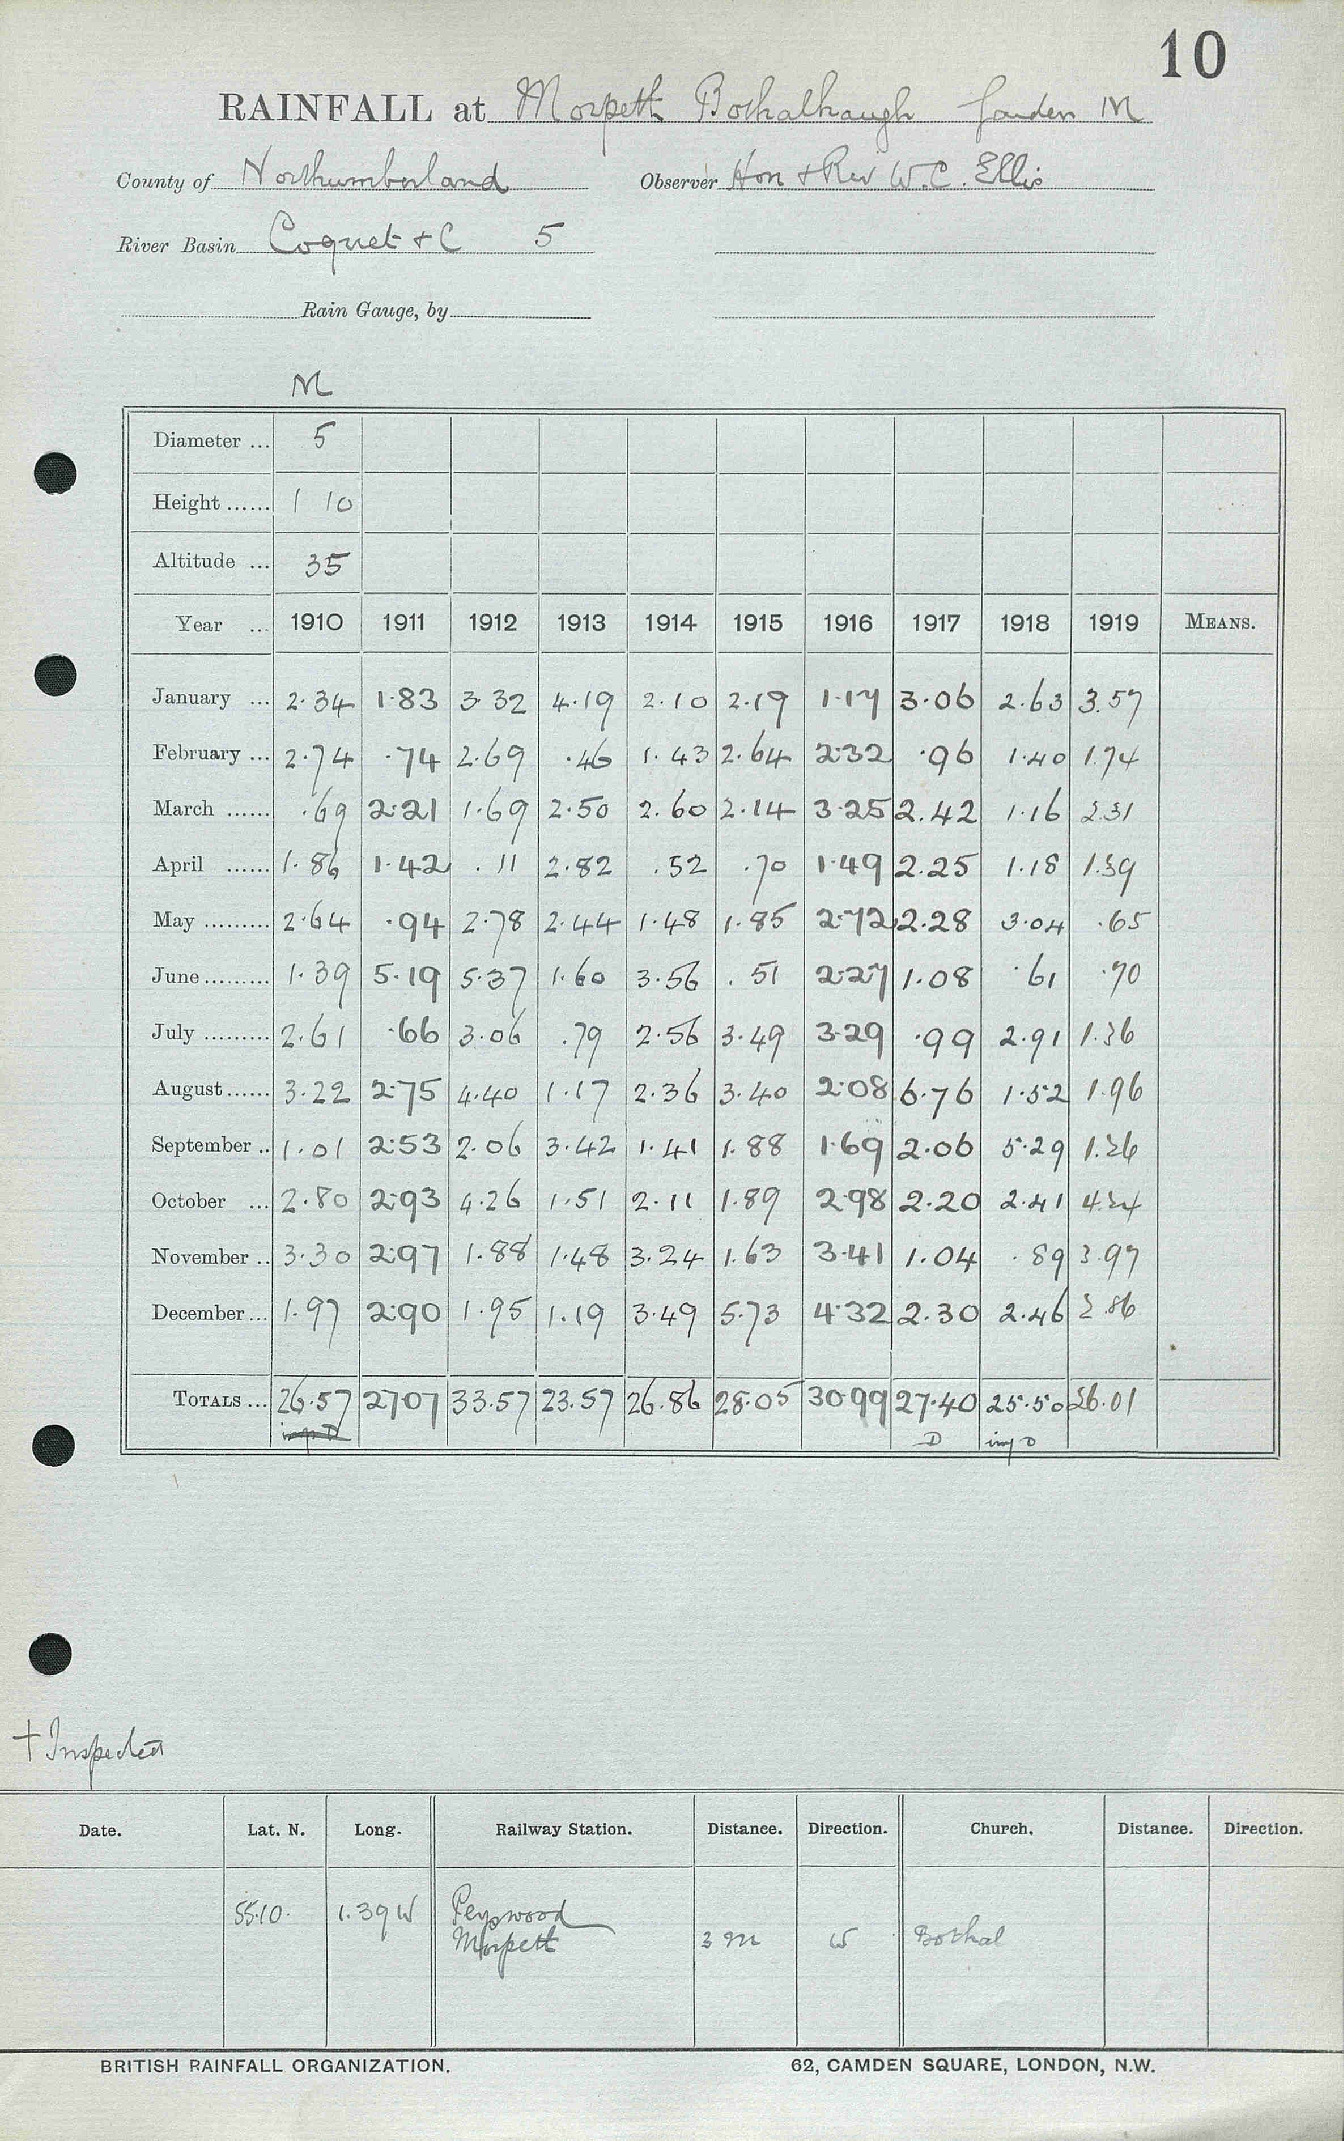 10
RAINFALL at Morpeth Bothalhaugh Garden M
County of Northumberland Observer Hon & Rev W.C. Ellis
River Basin Coquet & C 5
Rain Gauge, by
M
Diameter ... 5
Height ...... 1 10
Altitude ... 35
Year ... 1910 1911 1912 1913 1914 1915 1916 1917 1918 1919 MEANS.
January ... 2.34 1.83 3.32 4.19 2.10 2.19 1.17 3.06 2.63 3.57
February ... 2.74 .74 2.69 .46 1.43 2.64 2.32 .96 1.40 1.74
March ...... .69 2.21 1.69 2.50 2.60 2.14 3.25 2.42 1.16 2.31
April ...... 1.86 1.42 .11 2.82 .52 .70 1.49 2.25 1.18 1.39
May ......... 2.64 .94 2.78 2.44 1.48 1.85 2.72 2.28 3.04 .65
June ......... 1.39 5.19 5.37 1.60 3.56 .51 2.27 1.08 .61 .70
July ......... 2.61 .66 3.06 .79 2.56 3.49 3.29 .99 2.91 1.36
August ...... 3.22 2.75 4.40 1.17 2.36 3.40 2.08 6.76 1.52 1.96
September .. 1.01 2.53 2.06 3.42 1.41 1.88 1.69 2.06 5.29 1.26
October ... 2.80 2.93 4.26 1.51 2.11 1.89 2.98 2.20 2.41 4.24
November .. 3.30 2.97 1.88 1.48 3.24 1.63 3.41 1.04 .89 3.97
December ... 1.97 2.90 1.95 1.19 3.49 5.73 4.32 2.30 2.46 2.86
TOTALS ... 26.57 27.07 33.57 23.57 26.86 28.05 30.99 27.40 25.50 26.01
D imp D
† Inspected
Date. Lat. N. Long. Railway Station. Distance. Direction. Church. Distance. Direction.
55.10. 1.39 W Pegswood
Morpeth 3 m W Bothal
BRITISH RAINFALL ORGANIZATION. 62, CAMDEN SQUARE, LONDON, N.W.